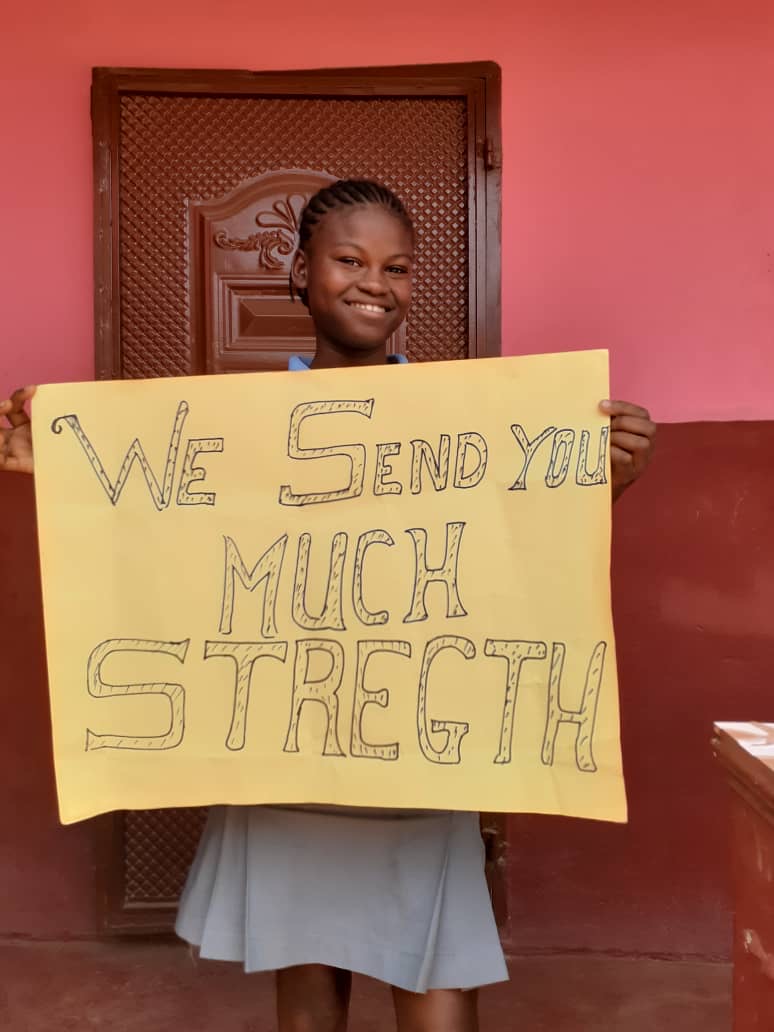 WE SEND YOU
MUCH
STREGTH